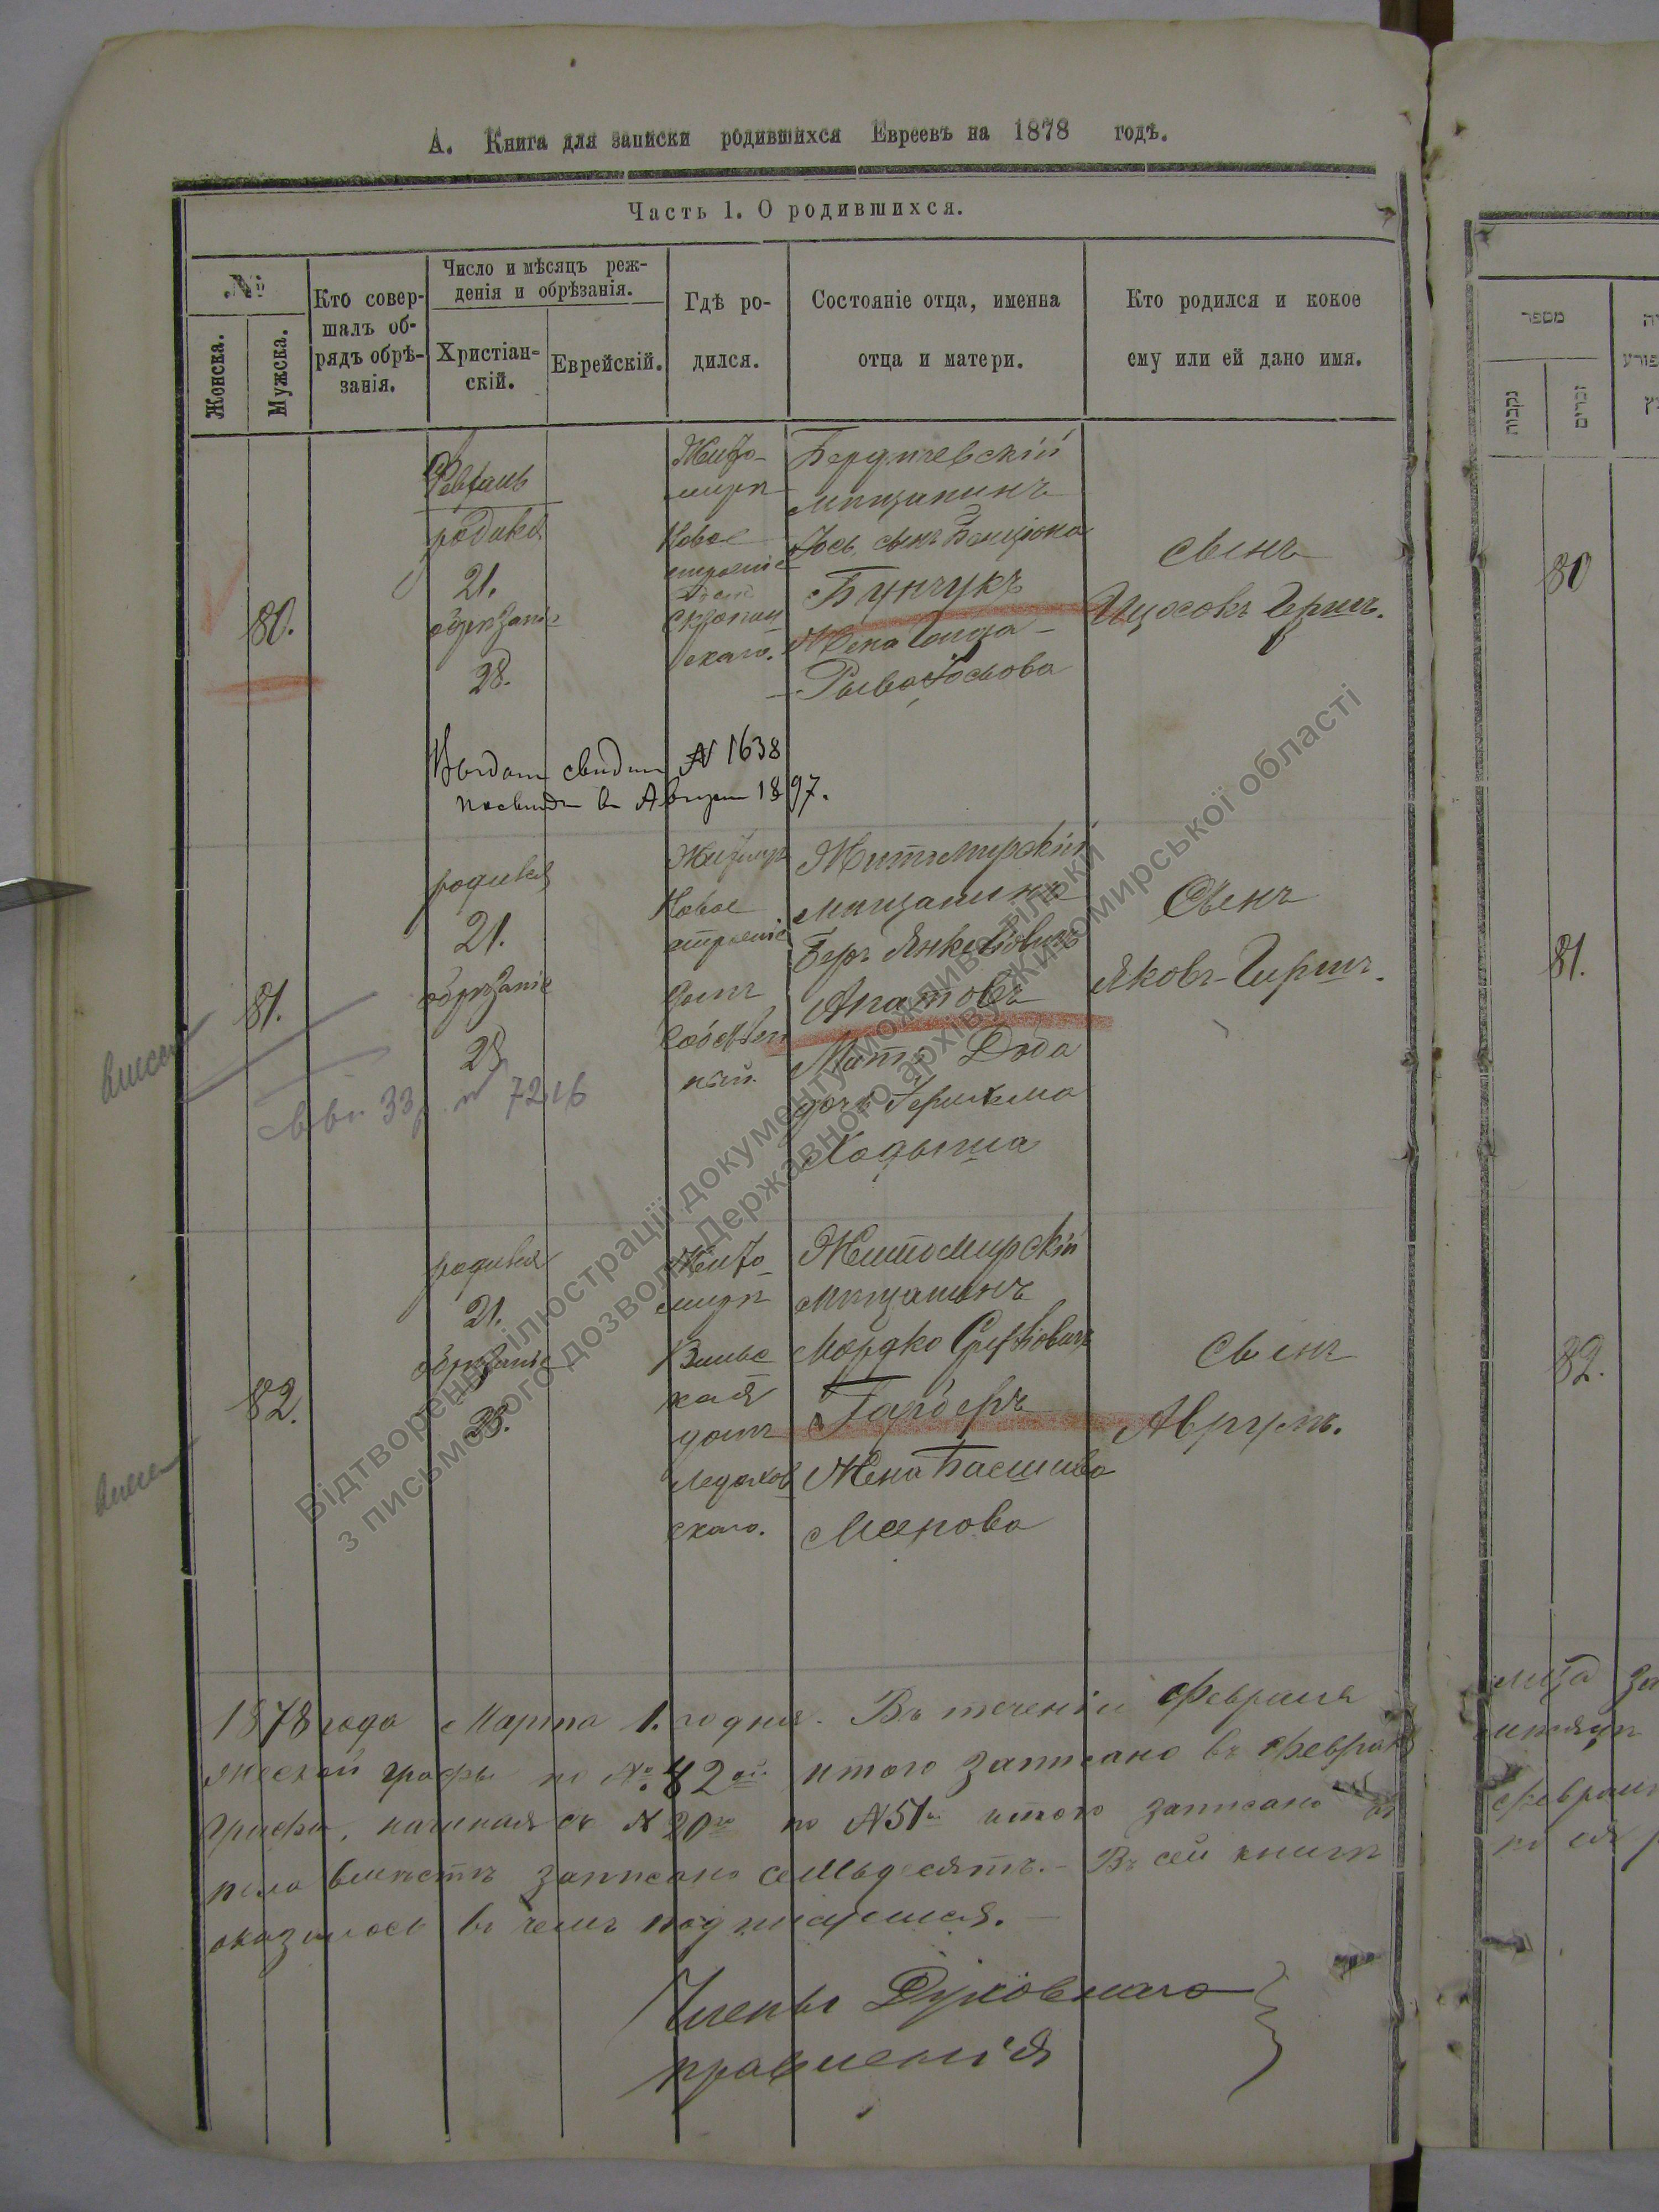 А. Книга для записки родившихся Евреевъ на 1878 годъ.
Часть 1. О родившихся.
№
Женска.
Мужска.
Кто совер-
шалъ об-
рядъ обрѣ-
занія.
Число и мѣсяцъ реж-
денія и обрѣзанія.
Христіан-
скій.
Еврейскій.
Гдѣ ро-
дился.
Состояніе отца, именна
отца и матери.
Кто родился и кокое
ему или ей дано имя.
80.
Февраль
родился
21.
обрѣзаніе
28.
Жито-
миръ
Новое
строеніе
скаго.
Бердичевскій
мѣщанинъ
Іось сынъ Бенціона
Бунчукъ
Жена
Рыва Іосьова
сынъ
Гершъ.
Выдано свидет N 1638
в Августе 1897.
81.
родился
21.
обрѣзаніе
28
Житомир
Новое
строеніе
домъ
Собствен
ный.
Житомирскій
мѣщанинъ
Беръ Янкелiовичъ
Агатовъ
Мать Двода
дочь
Сынъ
Яковъ-Гершъ.
33 7216
82.
родился
21.
обрѣзаніе
Жито-
миръ
Вильс
кая
домъ
скаго.
Житомирскій
мѣщанинъ
Мордко Срулiовичъ
Гарберъ
Жена Басшива
Меерова
Сынъ
Аврумъ.
1878 года Марта 1. го дня. Въ теченіи Февраля
графы по № 82 ой итого записано въ Феврале
графы, начиная съ N 20 го по N 51 итого записано въ
пола вместѣ записано семьдесятъ. - Въ сей книгѣ
оказалось въ чемъ подписуемся. -
Члены Духовнаго
правленія
מספר
נקבות
זכרים
80
81.
82.
Відтворення ілюстрації документу можливе тільки
з письмового дозволу Державного архіву Житомирської області